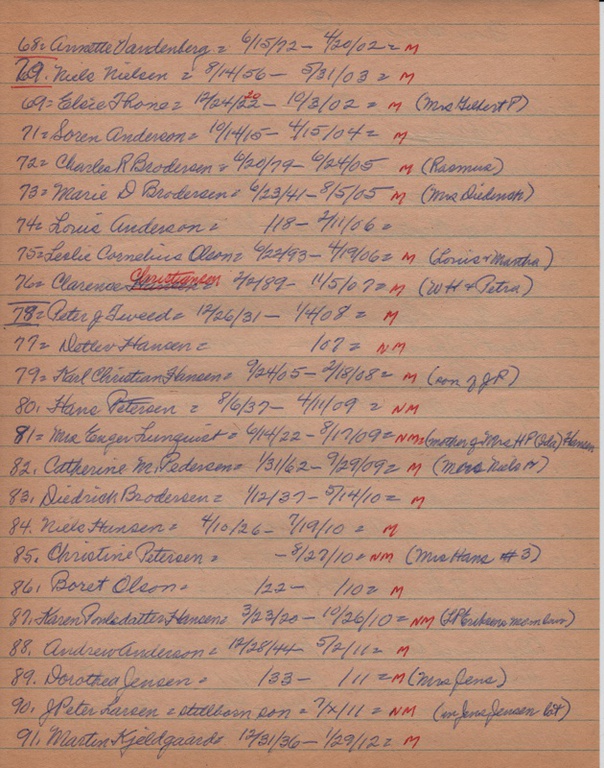 68= Annette Vandenberg = 6/15/72 - 4/20/02 = M
69. Niels Nielsen = 8/14/56 - 5/31/03 = M
69= Elsie Thone = 12/24/22 20 - 10/3/02 = M (Mrs Gilbert P)
71= Soren Anderson = 10/14/15 - 4/15/04 = M
72= Charles R Brodersen = 6/20/79 - 6/24/05 M (Rasmus)
73= Marie D Brodersen = 6/23/41 - 8/5/05 M (Mrs Diedrich)
74= Louis Anderson = /18 - 2/11/06 =
75= Leslie Cornelius Olson = 6/22/93 - 4/19/06 = M (Louis & Martha)
76= Clarence Christiansen = 2/2/89 - 11/5/07 = M (WH & Petra)
78= Peter J Tweed = 12/26/31 - 1/4/08 = M
77= Detlev Hansen = /07 = NM
79= Karl Christian Hansen = 9/24/05 - 2/18/08 = M (son of JP)
80. Hans Petersen = 8/6/37 - 4/11/09 = NM
81= Mrs Enger Lunquist = 6/14/22 - 8/17/09 = NM = (mother of Mrs HP (Ida) Hansen
82. Catherine M. Pedersen = 1/31/62 - 9/29/09 = M (Mrs Niels N)
83. Diedrick Brodersen = 1/12/37 - 5/14/10 = M
84. Niels Hansen = 4/10/26 - 7/19/10 = M
85. Christine Petersen = - 8/27/10 = NM (Mrs Hans #3)
86. Boret Olson = /22 - /10 = M
87. Karen Poulsdatter Hansen = 3/23/20 - 10/26/10 = NM
88. Andrew Anderson = 12/28/44 - 5/2/11 = M
89. Dorothea Jensen = /33 - /11 = M (Mrs Jens)
90. J Peter Larsen = stillborn son = ?/x/11 = NM (in Jens Jensen lot)
91. Martin Kjeldgaard = 12/31/36 - 1/29/12 = M